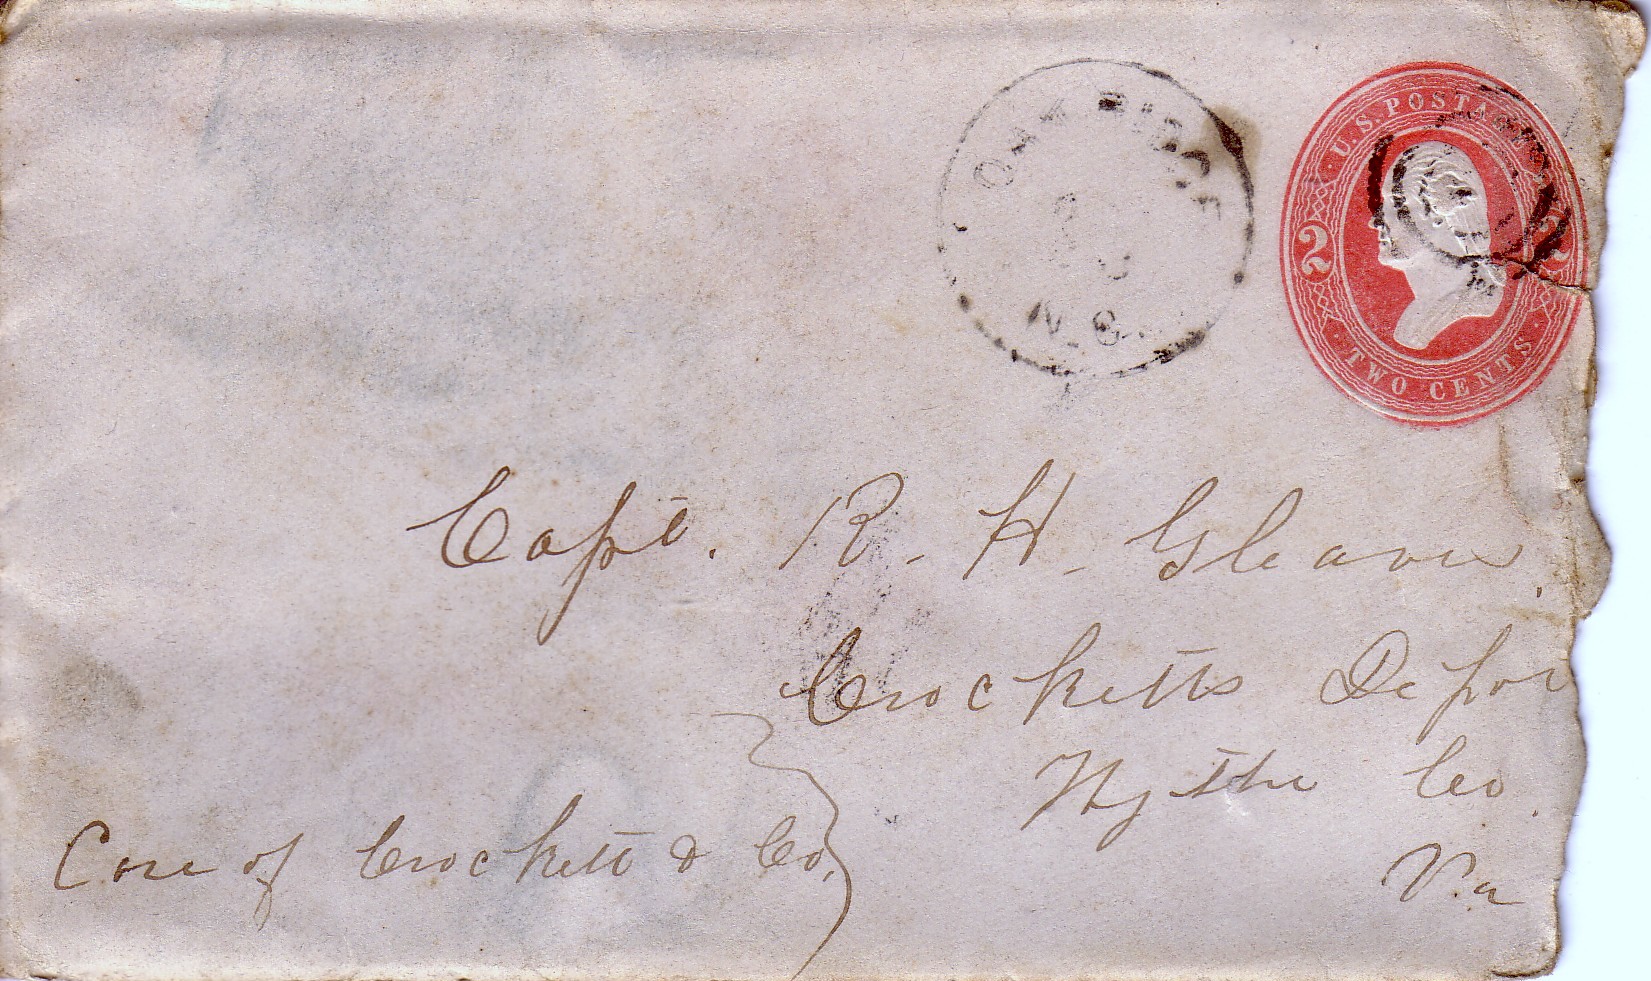 OAK RIDGE
N.C.
U.S. POSTAGE
2 2
TWO CENTS
Capt. R. H. Gleaves
Crocketts Depot
Wythe Co.
Va
Care of Crockett & Co.